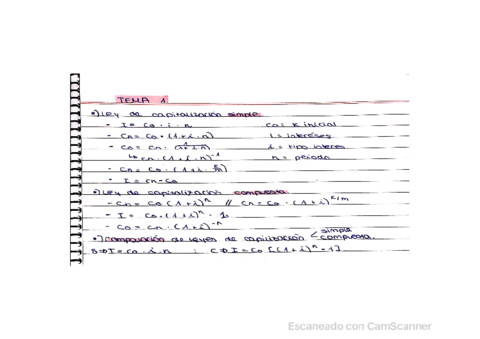 TEMA 1
•) Ley de capitalización simple
- I = Co · i · n    Co = K inicial
- Cn = Co · (1+i·n)    I = intereses
- Co = Cn · (1/1+i·n)    i = tipo interes
↳ Cn · (1+i·n)⁻¹    n = periodo
- Cn = Co · (1+i ·
- I = Cn - Co
•) Ley de capitalización compuesta
- Cn = Co (1+i)ⁿ // Cn = Co · (1+i)
- I = Co · (1+i)ⁿ - 1
- Co = Cn · (1+i)⁻ⁿ
•) Comparación de leyes de capitalización < simple compuesta.
S⇒I = Co · i · n ; C⇒I = Co [(1+i)ⁿ - 1]
Escaneado con CamScanner